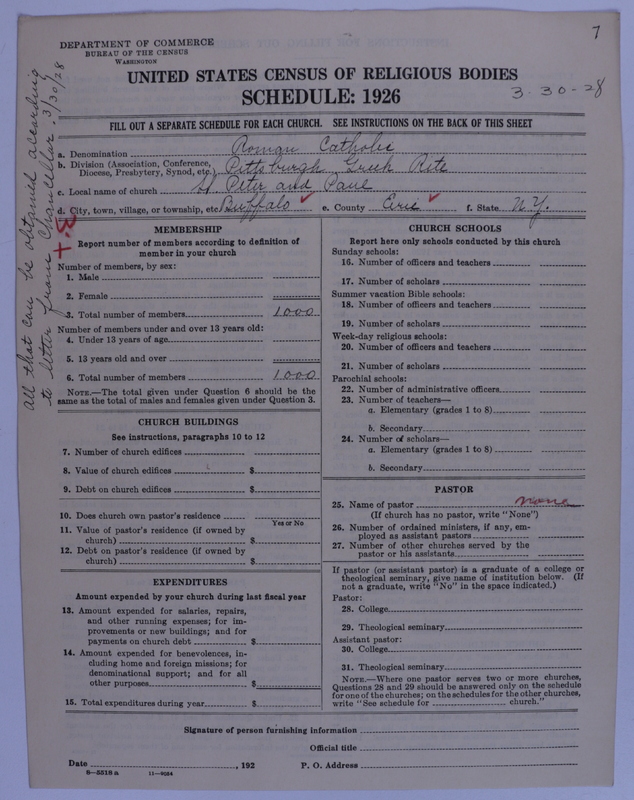 7
DEPARTMENT OF COMMERCE
BUREAU OF THE CENSUS
WASHINGTON
UNITED STATES CENSUS OF RELIGIOUS BODIES
SCHEDULE: 1926
3-30-28
FILL OUT A SEPARATE SCHEDULE FOR EACH CHURCH. SEE INSTRUCTIONS ON THE BACK OF THIS SHEET
All that can be obtained according
to letter from Chancellor. 3/30/28
a. Denomination Roman Catholic
b. Division (Association, Conference, Diocese, Presbytery, Synod, etc.) Pittsburgh Greek Rite
c. Local name of church St. Peter and Paul
d. City, town, village, or township, etc. Buffalo e. County Erie f. State N.Y.
MEMBERSHIP
Report number of members according to definition of
member in your church
Number of members, by sex:
1. Male
2. Female
3. Total number of members 1000
Number of members under and over 13 years old:
4. Under 13 years of age
5. 13 years old and over
6. Total number of members 1000
NOTE.—The total given under Question 6 should be the
same as the total of males and females given under Question 3.
CHURCH BUILDINGS
See instructions, paragraphs 10 to 12
7. Number of church edifices
8. Value of church edifices $
9. Debt on church edifices $
10. Does church own pastor's residence
Yes or No
11. Value of pastor's residence (if owned by
church) $
12. Debt on pastor's residence (if owned by
church) $
EXPENDITURES
Amount expended by your church during last fiscal year
13. Amount expended for salaries, repairs,
and other running expenses; for im-
provements or new buildings; and for
payments on church debt $
14. Amount expended for benevolences, in-
cluding home and foreign missions; for
denominational support; and for all
other purposes $
15. Total expenditures during year $
CHURCH SCHOOLS
Report here only schools conducted by this church
Sunday schools:
16. Number of officers and teachers
17. Number of scholars
Summer vacation Bible schools:
18. Number of officers and teachers
19. Number of scholars
Week-day religious schools:
20. Number of officers and teachers
21. Number of scholars
Parochial schools:
22. Number of administrative officers
23. Number of teachers—
a. Elementary (grades 1 to 8)
b. Secondary
24. Number of scholars—
a. Elementary (grades 1 to 8)
b. Secondary
PASTOR
25. Name of pastor none
(If church has no pastor, write "None")
26. Number of ordained ministers, if any, em-
ployed as assistant pastors
27. Number of other churches served by the
pastor or his assistants
If pastor (or assistant pastor) is a graduate of a college or
theological seminary, give name of institution below. (If
not a graduate, write "No" in the space indicated.)
Pastor:
28. College
29. Theological seminary
Assistant pastor:
30. College
31. Theological seminary
NOTE.—Where one pastor serves two or more churches,
Questions 28 and 29 should be answered only on the schedule
for one of the churches; on the schedules for the other churches,
write "See schedule for church."
Signature of person furnishing information
Official title
Date , 192 P. O. Address
8—5518 a 11—9034